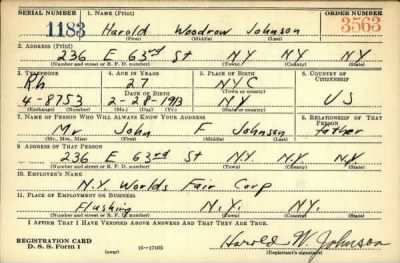 SERIAL NUMBER 1. NAME (Print) ORDER NUMBER
1183 Harold Woodrow Johnson 3563
(First) (Middle) (Last)
2. ADDRESS (Print)
236 E 63rd St N.Y N.Y N.Y
(Number and street or R. F. D. number) (Town) (County) (State)
3. TELEPHONE 4. AGE IN YEARS 5. PLACE OF BIRTH 6. COUNTRY OF CITIZENSHIP
Rh 27 NYC
DATE OF BIRTH (Town or county)
4-8753 2-28-1913 NY US
(Exchange) (Number) (Mo.) (Day) (Yr.) (State or country)
7. NAME OF PERSON WHO WILL ALWAYS KNOW YOUR ADDRESS 8. RELATIONSHIP OF THAT PERSON
Mr John F Johnson father
(Mr., Mrs., Miss) (First) (Middle) (Last)
9. ADDRESS OF THAT PERSON
236 E 63rd St N.Y. N.Y. N.Y.
(Number and street or R. F. D. number) (Town) (County) (State)
10. EMPLOYER'S NAME
N.Y. Worlds Fair Corp
11. PLACE OF EMPLOYMENT OR BUSINESS
Flushing N.Y. N.Y.
(Number and street or R. F. D. number) (Town) (County) (State)
I AFFIRM THAT I HAVE VERIFIED ABOVE ANSWERS AND THAT THEY ARE TRUE.
REGISTRATION CARD
D. S. S. Form 1 (over) 16-17105 Harold W. Johnson
(Registrant's signature)